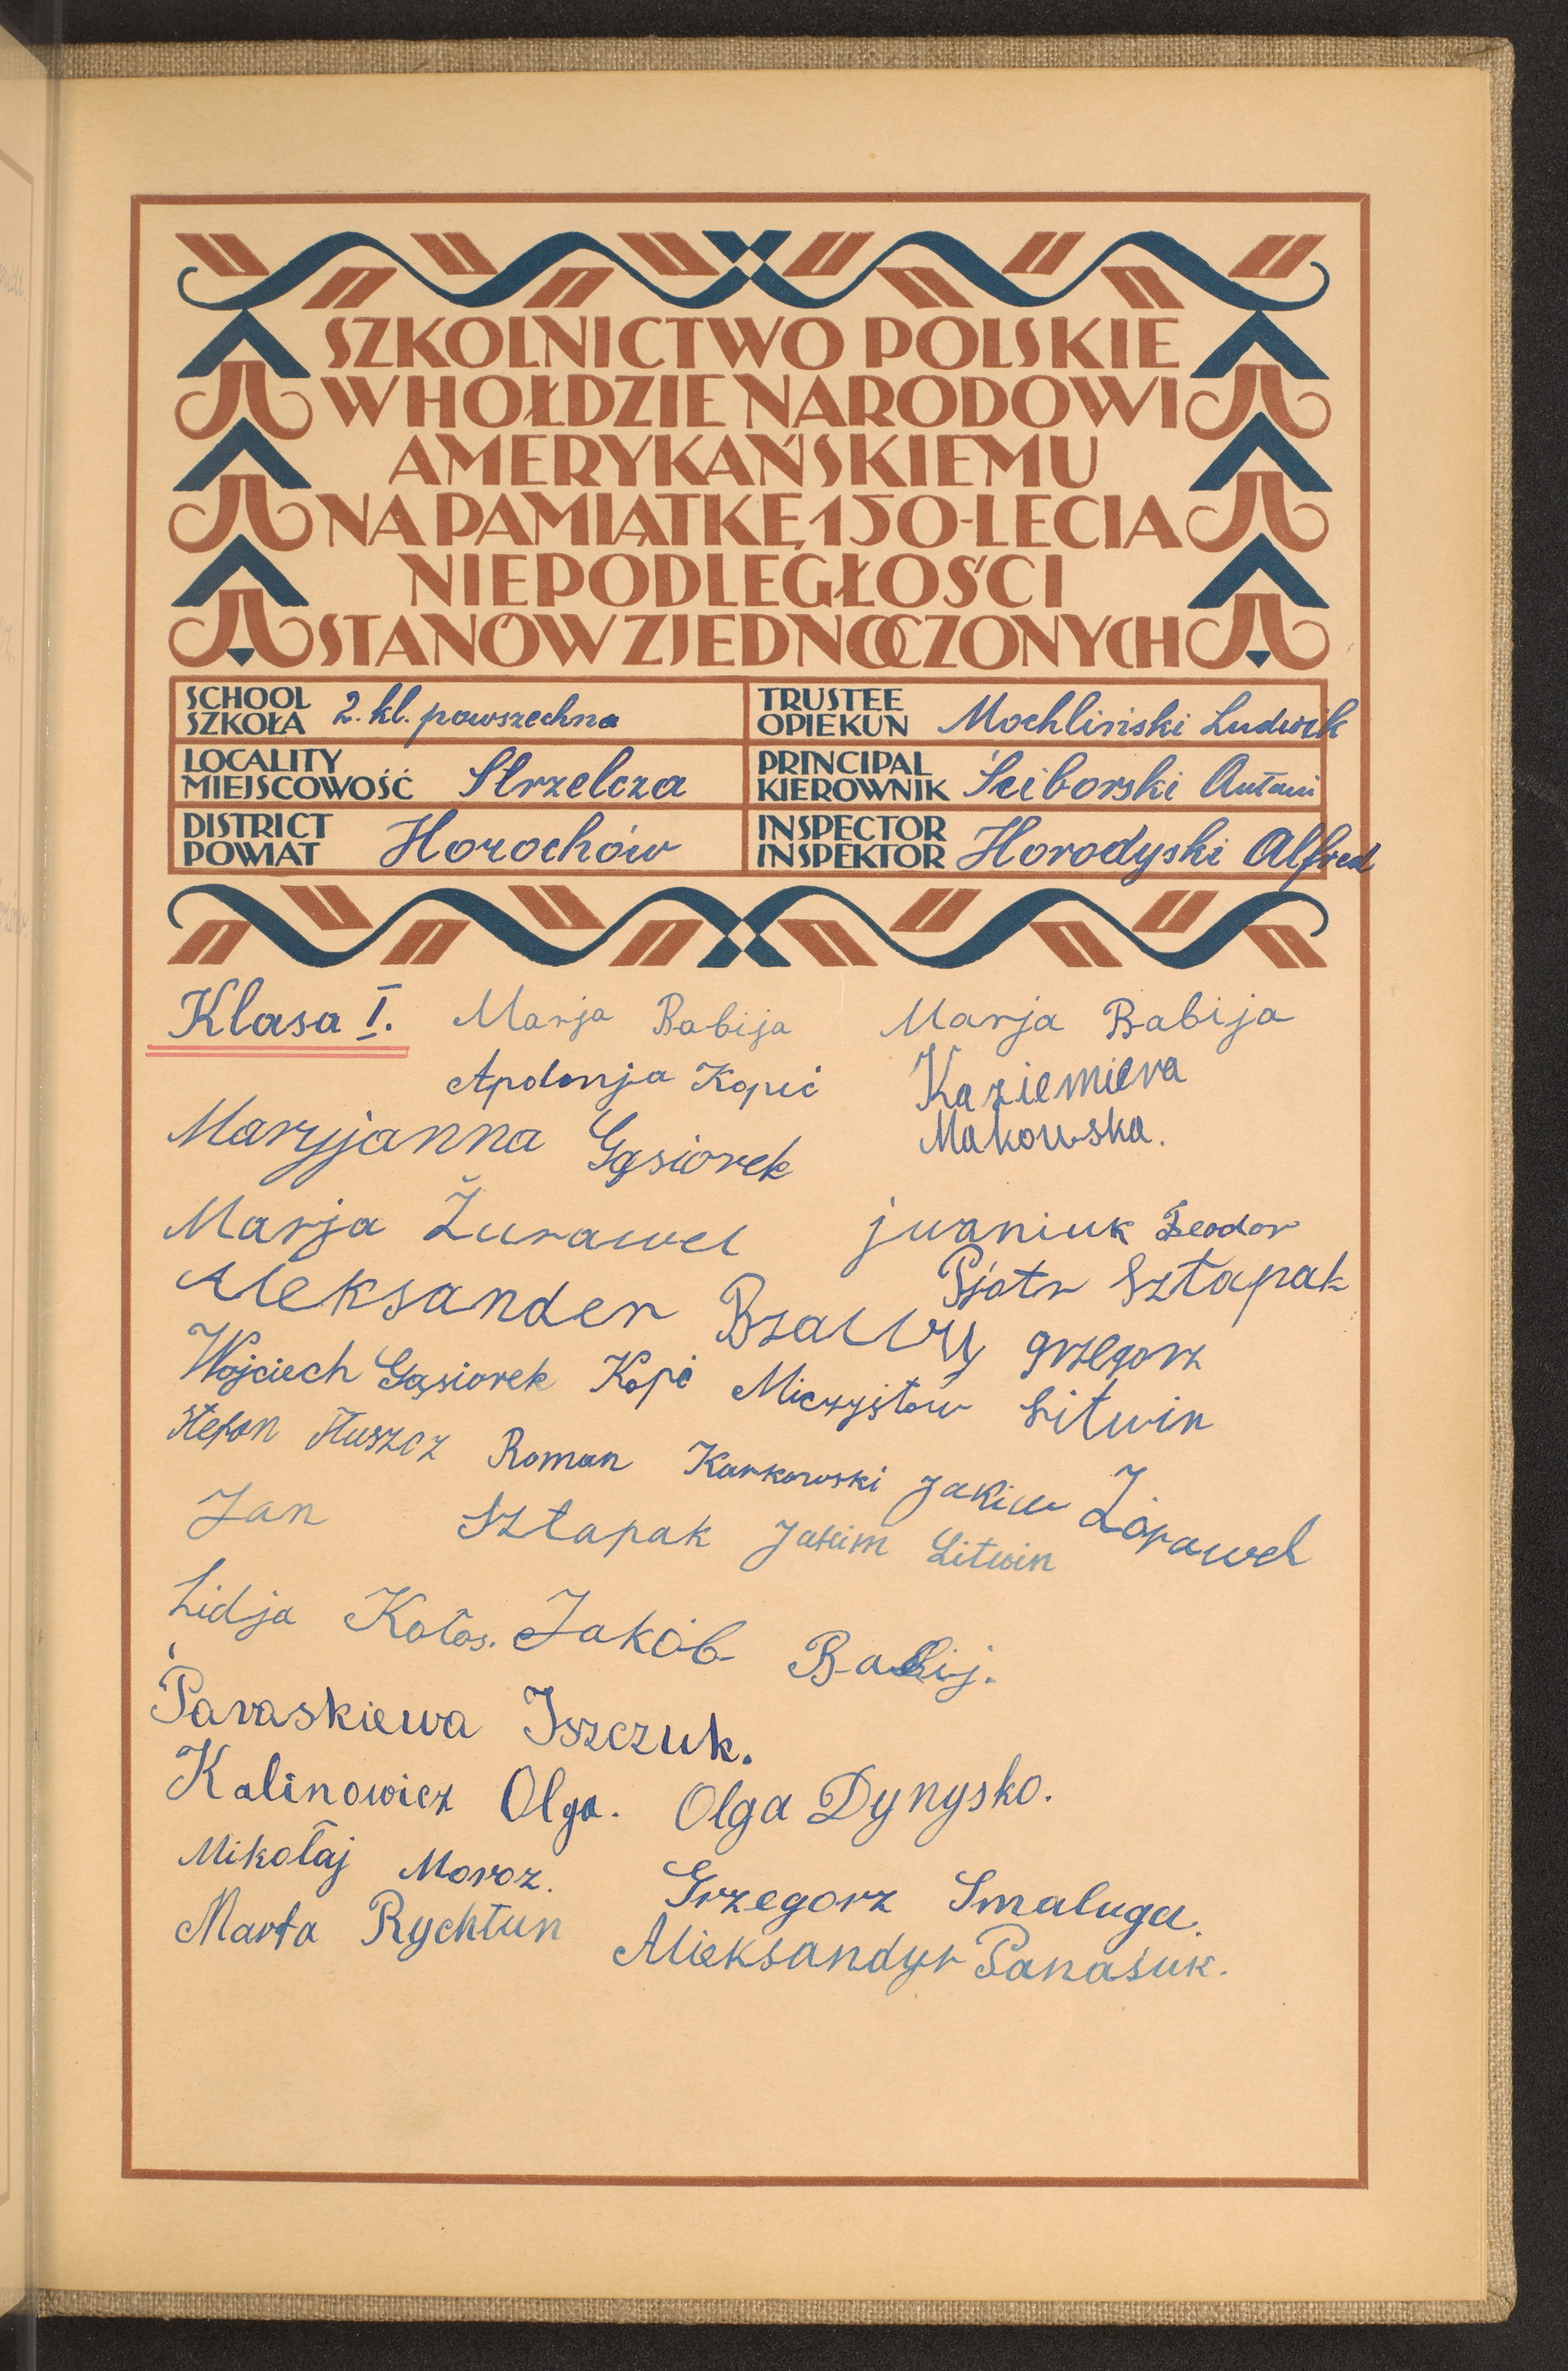 SZKOLNICTWO POLSKIE
W HOŁDZIE NARODOWI
AMERYKAŃSKIEMU
NA PAMIĄTKĘ 150-LECIA
NIEPODLEGŁOŚCI
STANÓW ZJEDNOCZONYCH
SCHOOL
SZKOŁA 2. kl. powszechna
TRUSTEE
OPIEKUN Mochliński Ludwik
LOCALITY
MIEJSCOWOŚĆ Strzelcza
PRINCIPAL
KIEROWNIK Ściborski Antoni
DISTRICT
POWIAT Horochów
INSPECTOR
INSPEKTOR Horodyski Alfred
Klasa I. Marja Babija Marja Babija
Apolonja Kopić Kaziemiera
Makowska.
Maryjanna Gąsiorek
Marja Żurawel juaniuk Teodor
Pjotr Sztapak
Aleksander Bzawy grzegorz
Wojciech Gąsiorek Kopć Miczysław Litwin
Stefan Huszcz Roman Karkowski Jakiw Żórawel
Jan Sztapak Jakim Litwin
Lidja Kołos. Jakób Babij.
Paraskiewa Iszczuk.
Kalinowicz Olga. Olga Dynysko.
Mikołaj Moroz. Grzegorz Smaluga.
Marta Rychtun Alieksandyr Panasuk.